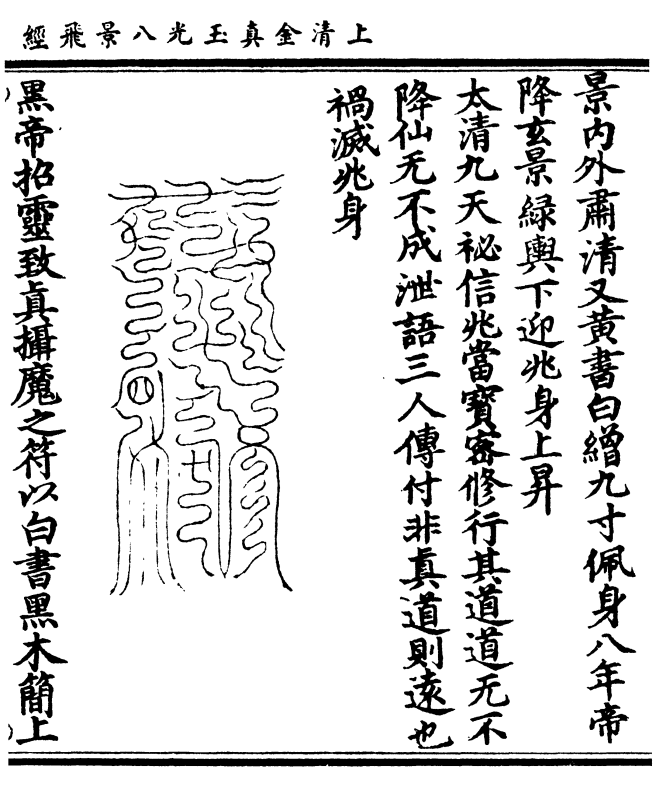 上清金真玉光八景飛經
景内外肅清又黃書白繒九寸佩身八年帝
降玄景緑輿下迎兆身上昇
太清九天祕信兆當寶密修行其道道无不
降仙无不成泄語三人傳付非真道則遠也
禍滅兆身
黒帝招靈致真攝魔之符以白書黒木簡上